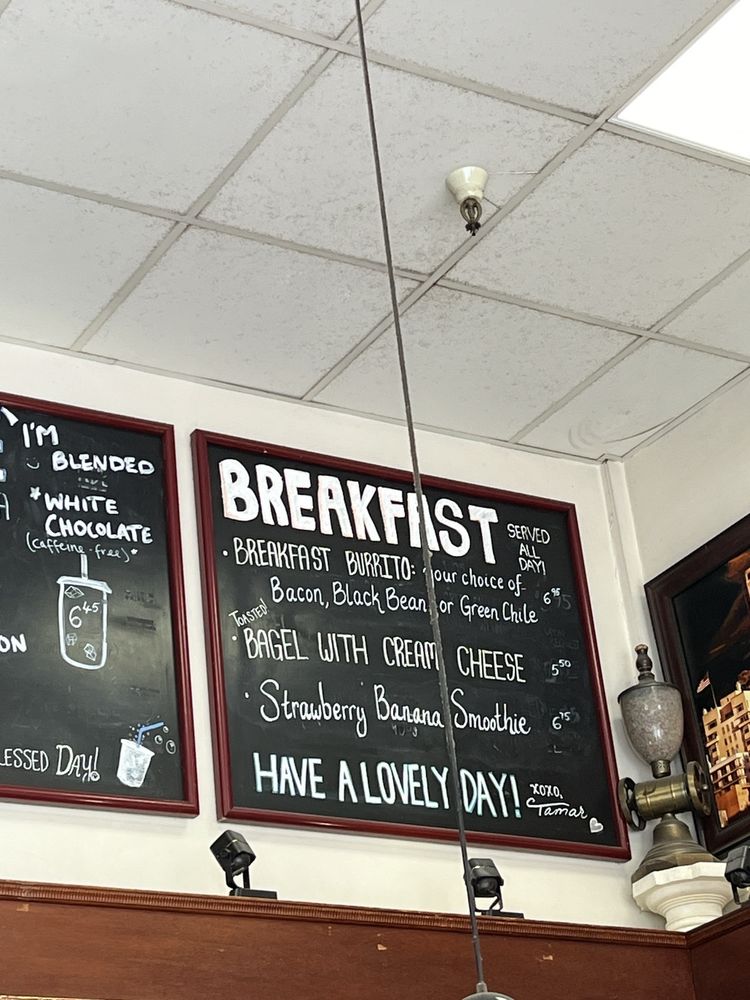 I'M
BLENDED
*WHITE
CHOCOLATE
(caffeine-free)*
6 45
ON
LESSED DAY!
BREAKFAST
SERVED
ALL
DAY!
• BREAKFAST BURRITO: your choice of
Bacon, Black Bean, or Green Chile 6 95
TOASTED!
• BAGEL WITH CREAM CHEESE 5 50
• Strawberry Banana Smoothie 6 75
HAVE A LOVELY DAY!
XOXO,
Tamar